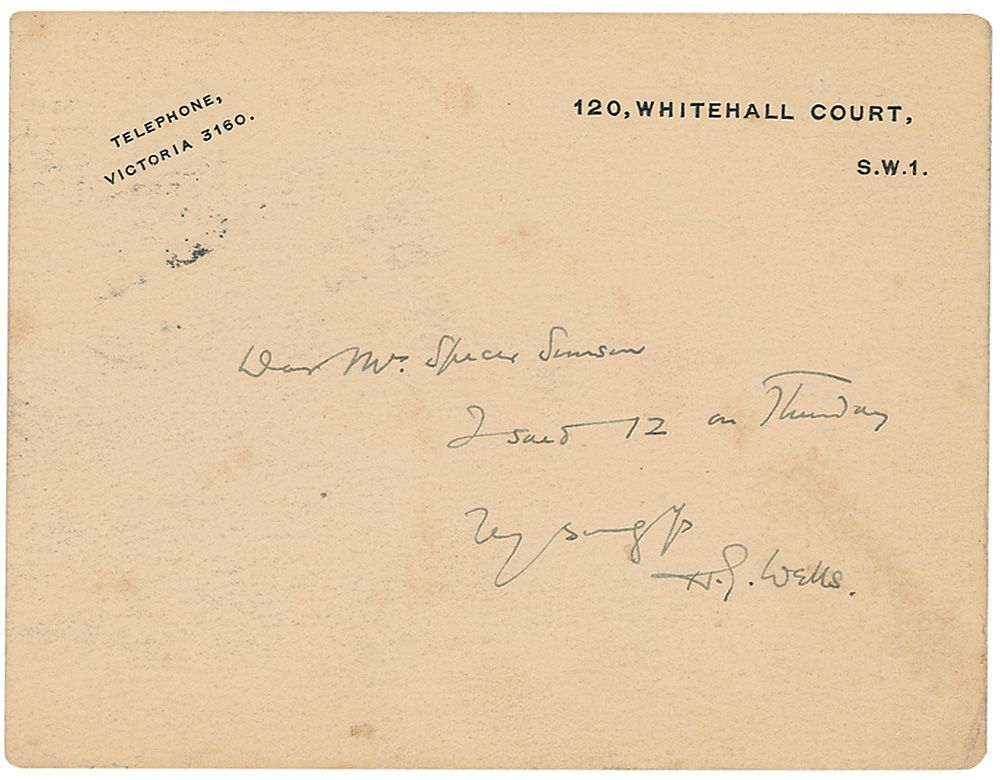 TELEPHONE,
VICTORIA 3160.
120, WHITEHALL COURT,
S.W.1.
Dear Mr. Spicer Simson
I said 12 on Thursday
H. G. Wells.